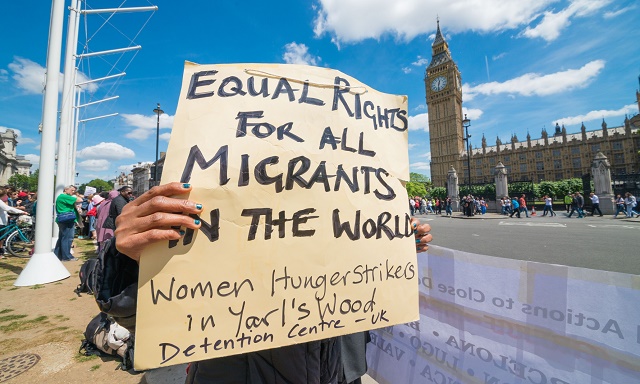 EQUAL RIGHTS
FOR ALL
MIGRANTS
IN THE WORLD
Women Hungerstrikers
in Yarl's Wood
Detention Centre - UK
Actions to Close
BARCELONA • LUGO •